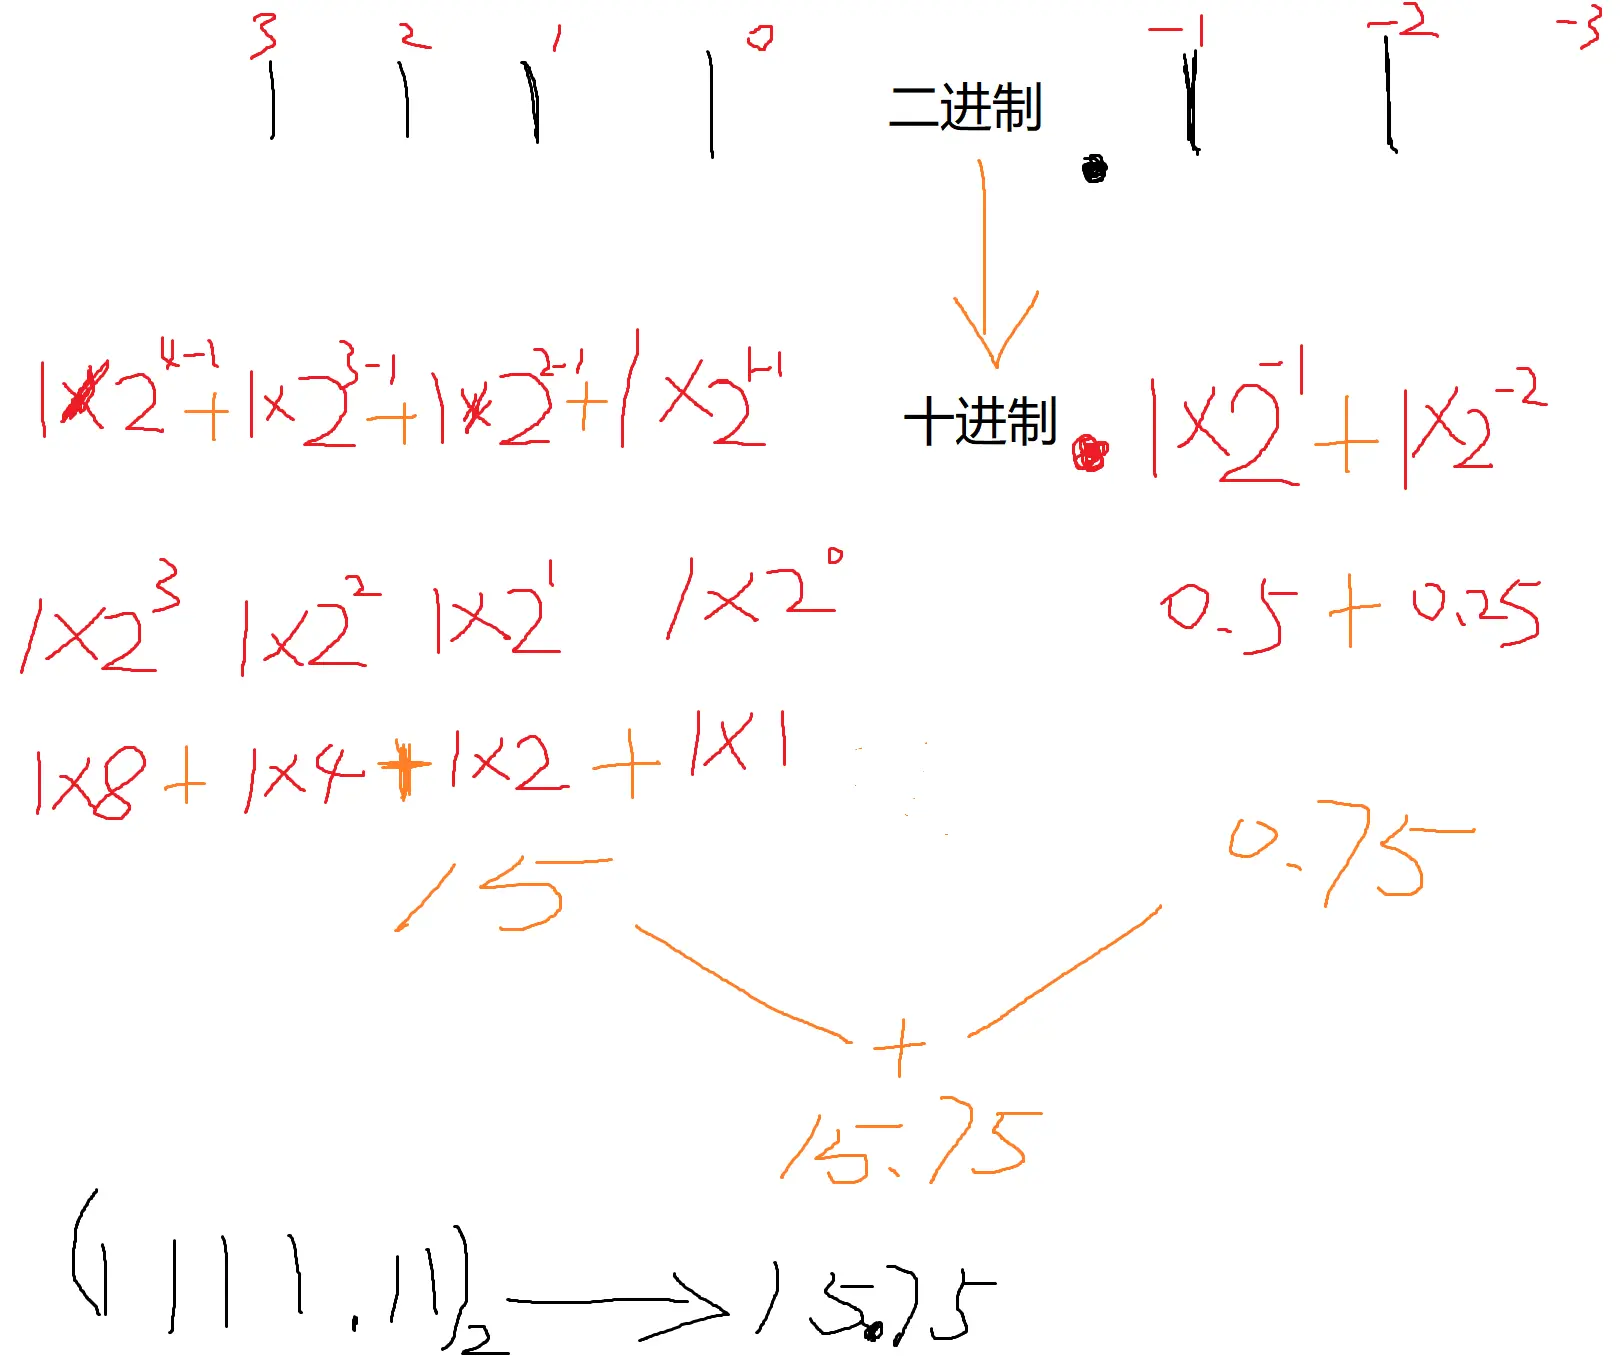 3 2 1 0 -1 -2 -3
1 1 1 1 二进制 . 1 1
1×2^{4-1} + 1×2^{3-1} + 1×2^{2-1} + 1×2^{1-1} 十进制 . 1×2^{-1} + 1×2^{-2}
1×2^3 1×2^2 1×2^1 1×2^0 0.5 + 0.25
1×8 + 1×4 + 1×2 + 1×1
15 0.75
+
15.75
(1111.11)_2 → 15.75